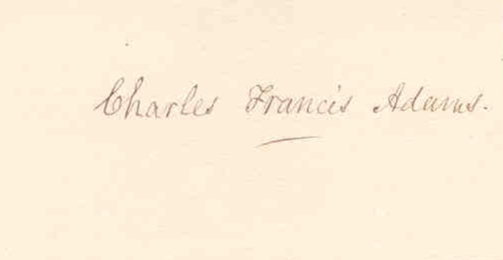 Charles Francis Adams.